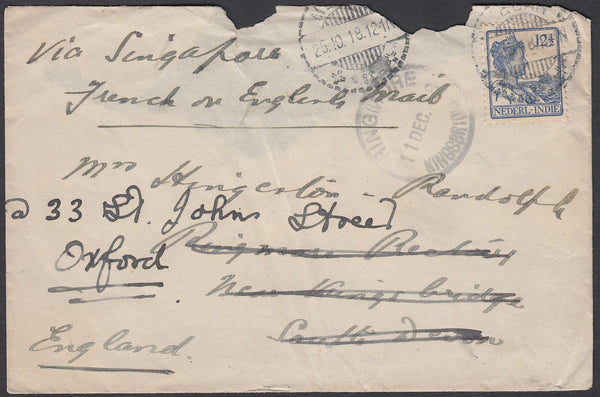 Via Singapore
French or English Mail
25.10.18.12
12½
NEDERL.INDIE
RING
11 DEC
KINGSBRID
Mrs Hingeston-Randolph
@ 33 St. Johns Street
Oxford
Ringmore Rectory
Near Kingsbridge
South Devon
England.